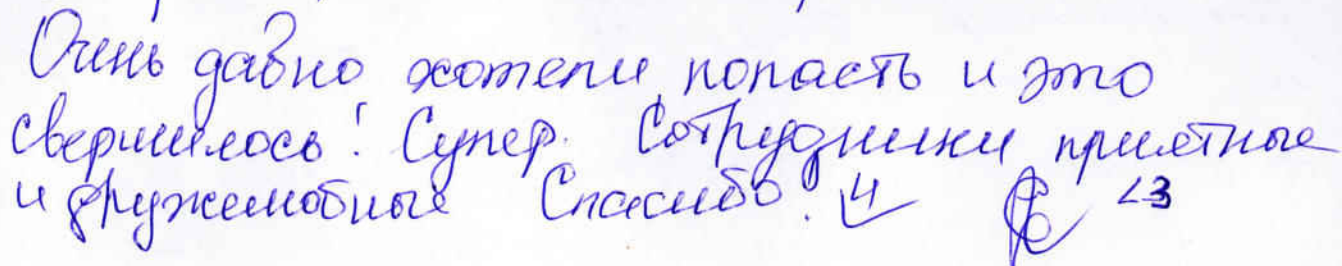 Очень давно хотели попасть и это
свершилось! Супер. Сотрудники приятные
и дружелюбные Спасибо! <3